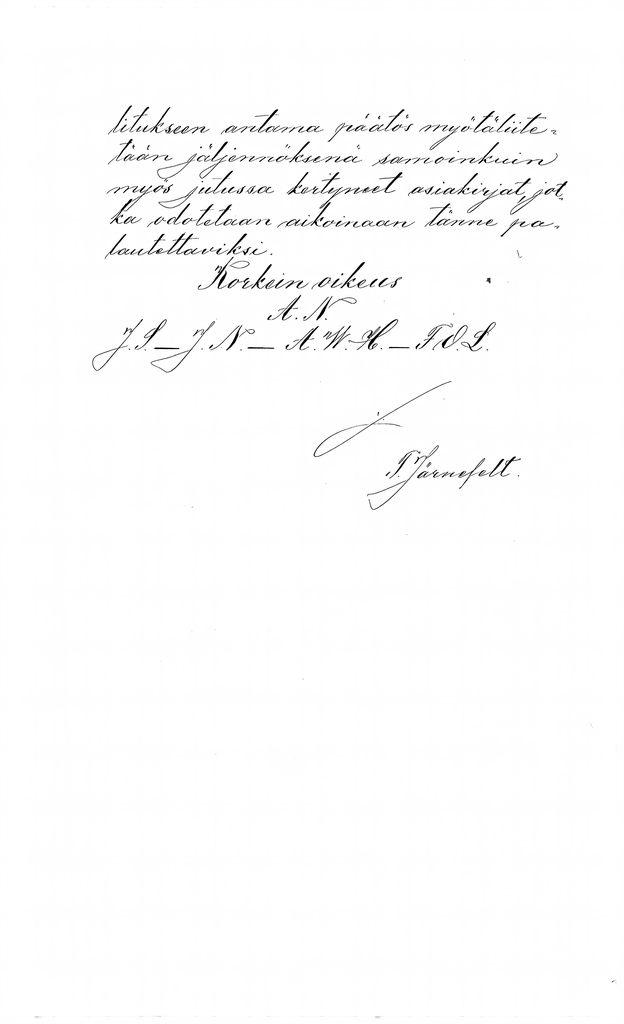 litukseen antama päätös myötäliite-
tään jäljennöksenä samoinkuin
myös jutussa kertyneet asiakirjat, jot-
ka odotetaan aikoinaan tänne pa-
lautettaviksi.
Korkein oikeus
A. N.
J. S. — J. N. — A. W. H. — F. O. L.
T. Järnefelt.